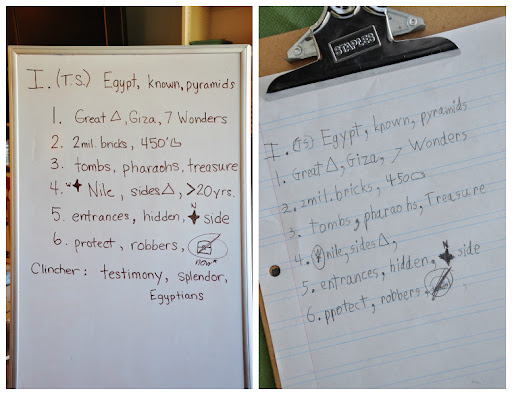 I. (T.S.) Egypt, known, pyramids
1. Great △, Giza, 7 Wonders
2. 2mil. bricks, 450'
3. tombs, pharaohs, treasure
4. W Nile, sides △, >20yrs.
5. entrances, hidden, N side
6. protect, robbers,
now*
Clincher: testimony, splendor,
Egyptians
STAPLES
I. (TS) Egypt, known, pyramids
1. Great △, Giza, 7 Wonders
2. 2mil. bricks, 450
3. tombs, pharaohs, Treasure
4. nile, sides △,
5. entrances, hidden, N side
6. protect, robbers,